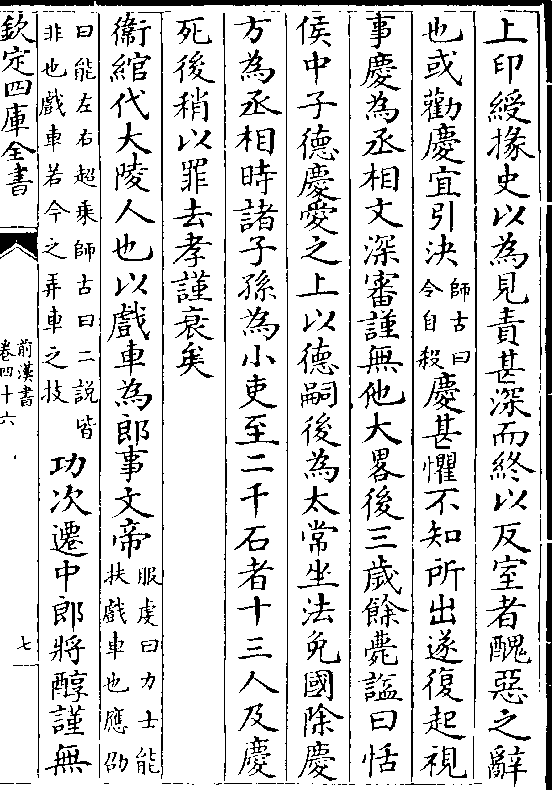 上印綬掾史以為見責甚深而終以反室者醜惡之辭
也或勸慶宜引決師古曰令自殺慶甚懼不知所出遂復起視
事慶為丞相文深審謹無他大畧後三歲餘薨諡曰恬
侯中子德慶愛之上以德嗣後為太常坐法免國除慶
方為丞相時諸子孫為小吏至二千石者十三人及慶
死後稍以罪去孝謹衰矣
衞綰代大陵人也以戲車為郎事文帝服虔曰力士能扶戲車也應劭
曰能左右超乘師古曰二説皆非也戲車若今之弄車之技功次遷中郎將醇謹無
欽定四庫全書
前漢書
卷四十六
七